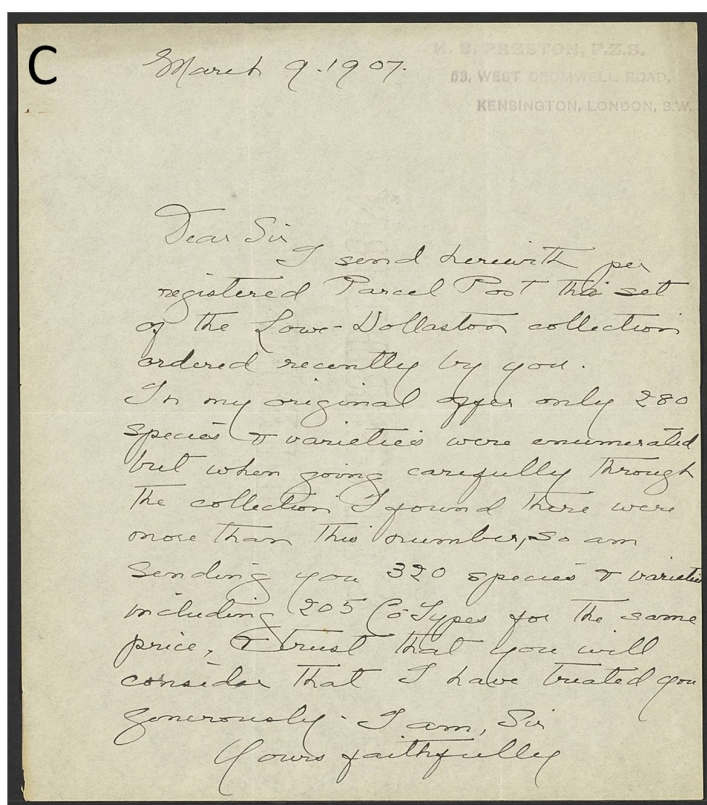 C
March 9. 1907.
H. B. PRESTON, F.Z.S.
53, WEST CROMWELL ROAD,
KENSINGTON, LONDON, S.W.
Dear Sir
I send herewith per
registered Parcel Post the set
of the Lowe-Wollaston collection
ordered recently by you.
In my original offer only 280
species & varieties were enumerated
but when going carefully through
the collection I found there were
more than this number, so am
sending you 320 species & varieties
including 205 Co-Types for the same
price, & trust that you will
consider that I have treated you
generously. I am, Sir
Yours faithfully